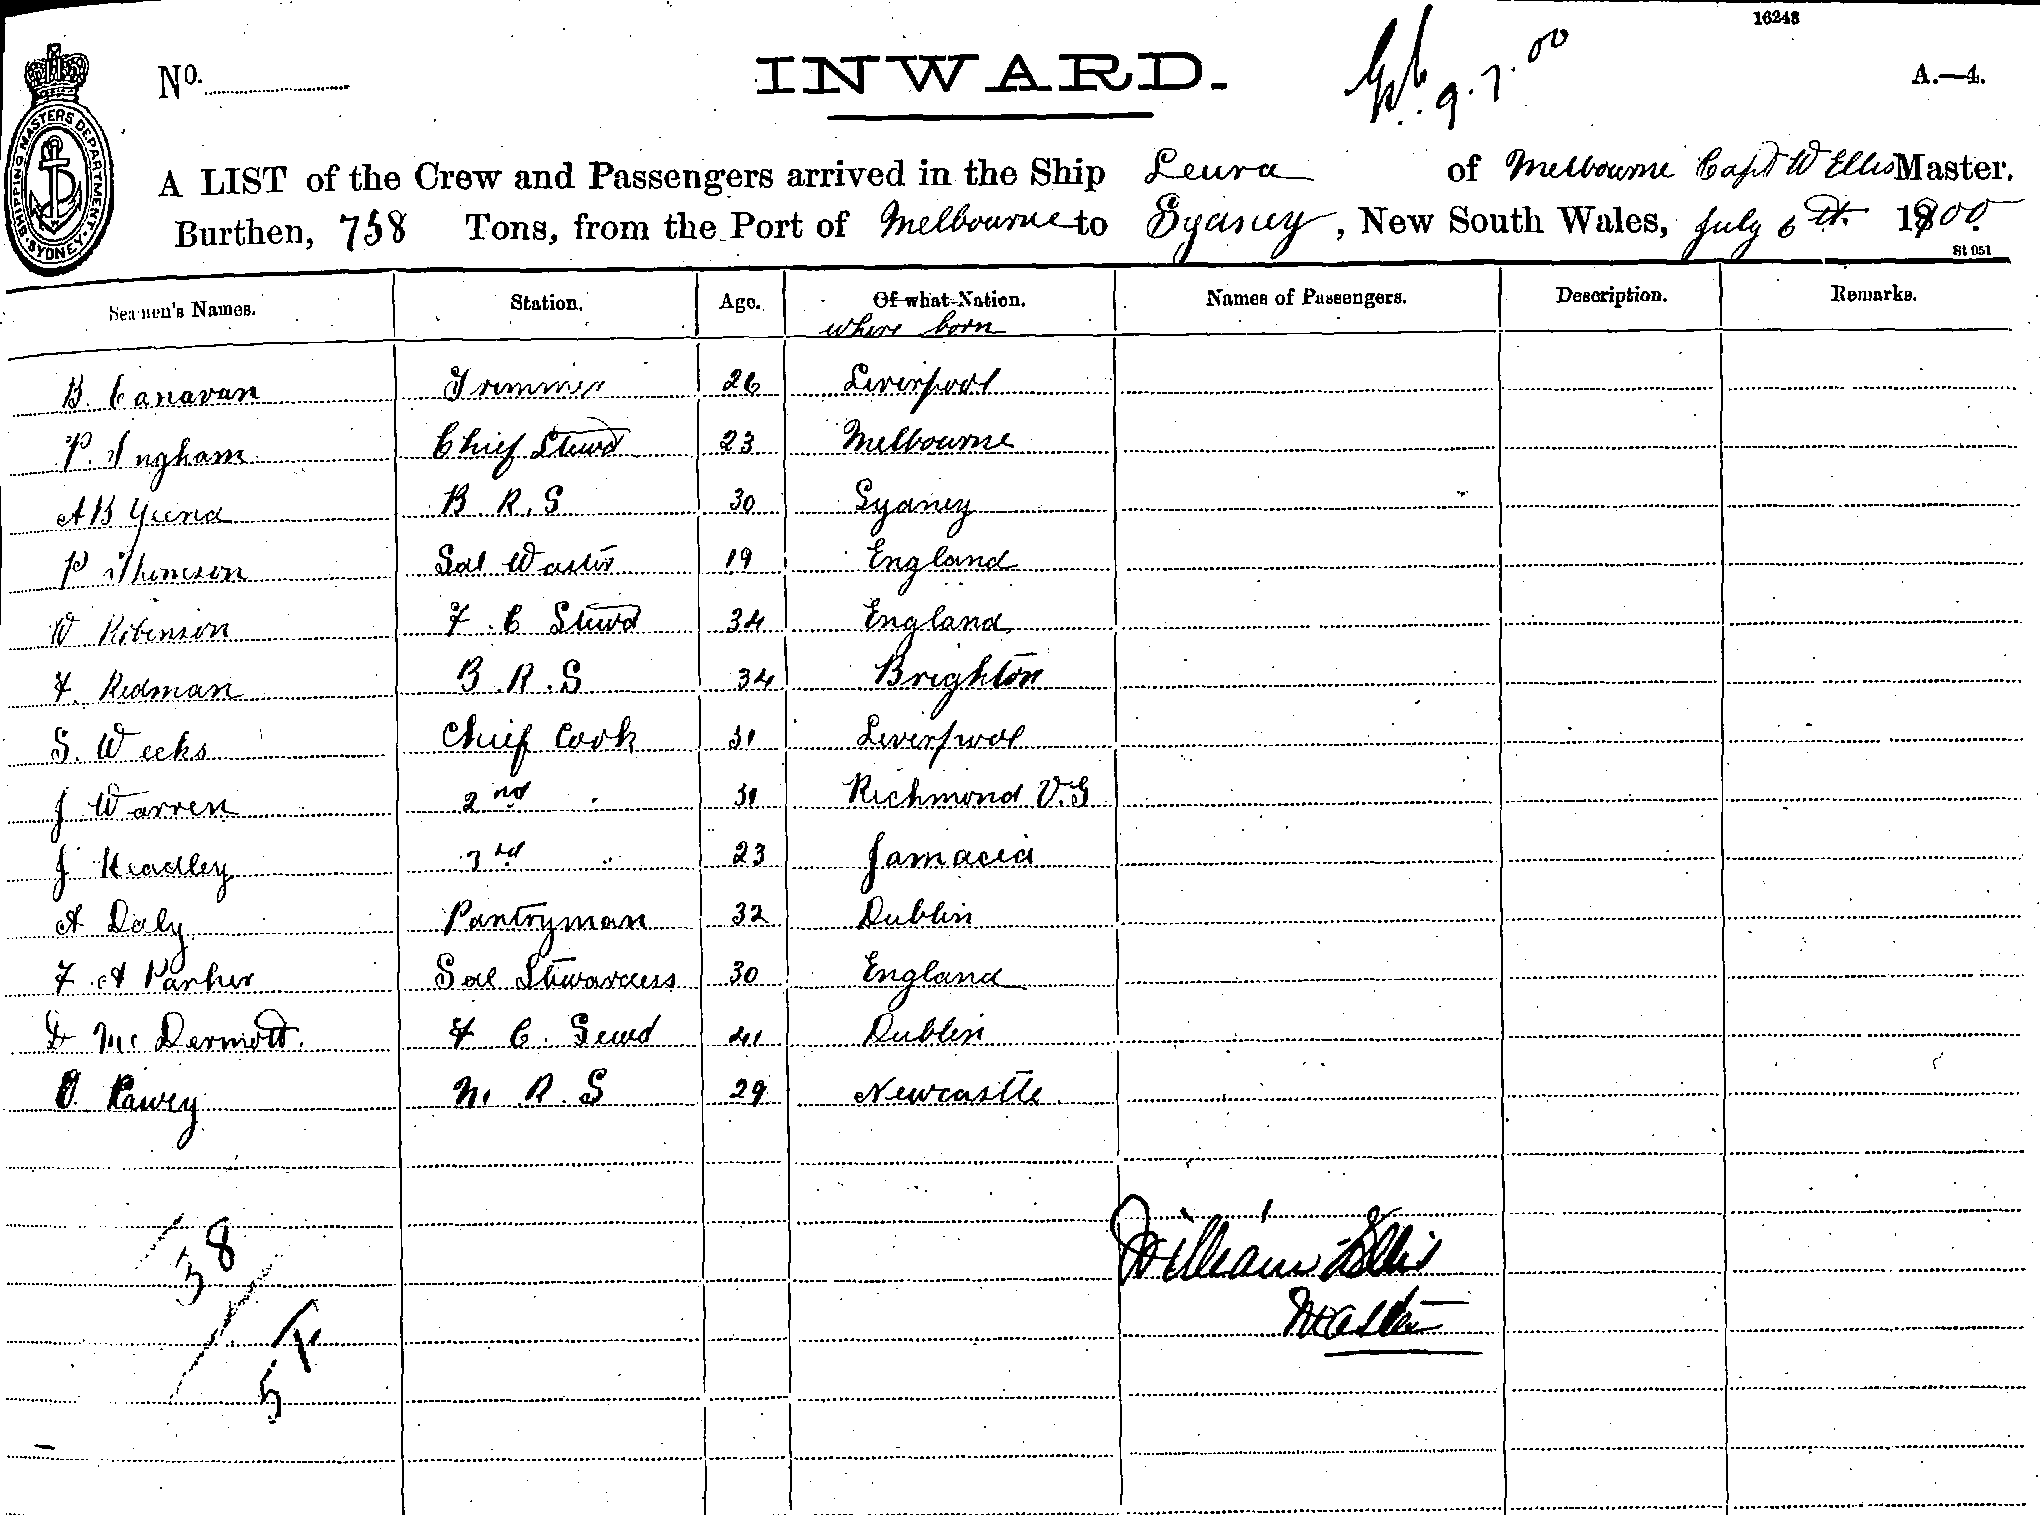 16248
INWARD.
No.
9.7.00
A.—4.
SHIPPING MASTERS DEPARTMENT. SYDNEY.
A LIST of the Crew and Passengers arrived in the Ship Leura of Melbourne Capt W Ellis Master.
Burthen, 758 Tons, from the Port of Melbourne to Sydney, New South Wales, July 6th 1900.
St 051
Seamen's Names. Station. Age. Of what Nation. Names of Passengers. Description. Remarks.
where born
B. Canavan Trimmer 26 Liverpool
P. Ingham Chief Stewd 23 Melbourne
A B B.R.S 30 Sydney
P Thomson Sal Waiter 19 England
W Robinson F.C Stewd 34 England
F. Redman B.R.S 34 Brighton
S. Weeks Chief Cook 31 Liverpool
J Warren 2nd " 31 Richmond V.G
J Headley 3rd " 23 Jamacia
A Daly Pantryman 32 Dublin
F. A Parker Sal Stewardess 30 England
Mc Dermott. F C. Sewd 41 Dublin
M.R.S 29 Newcastle
38
William Ellis
Master